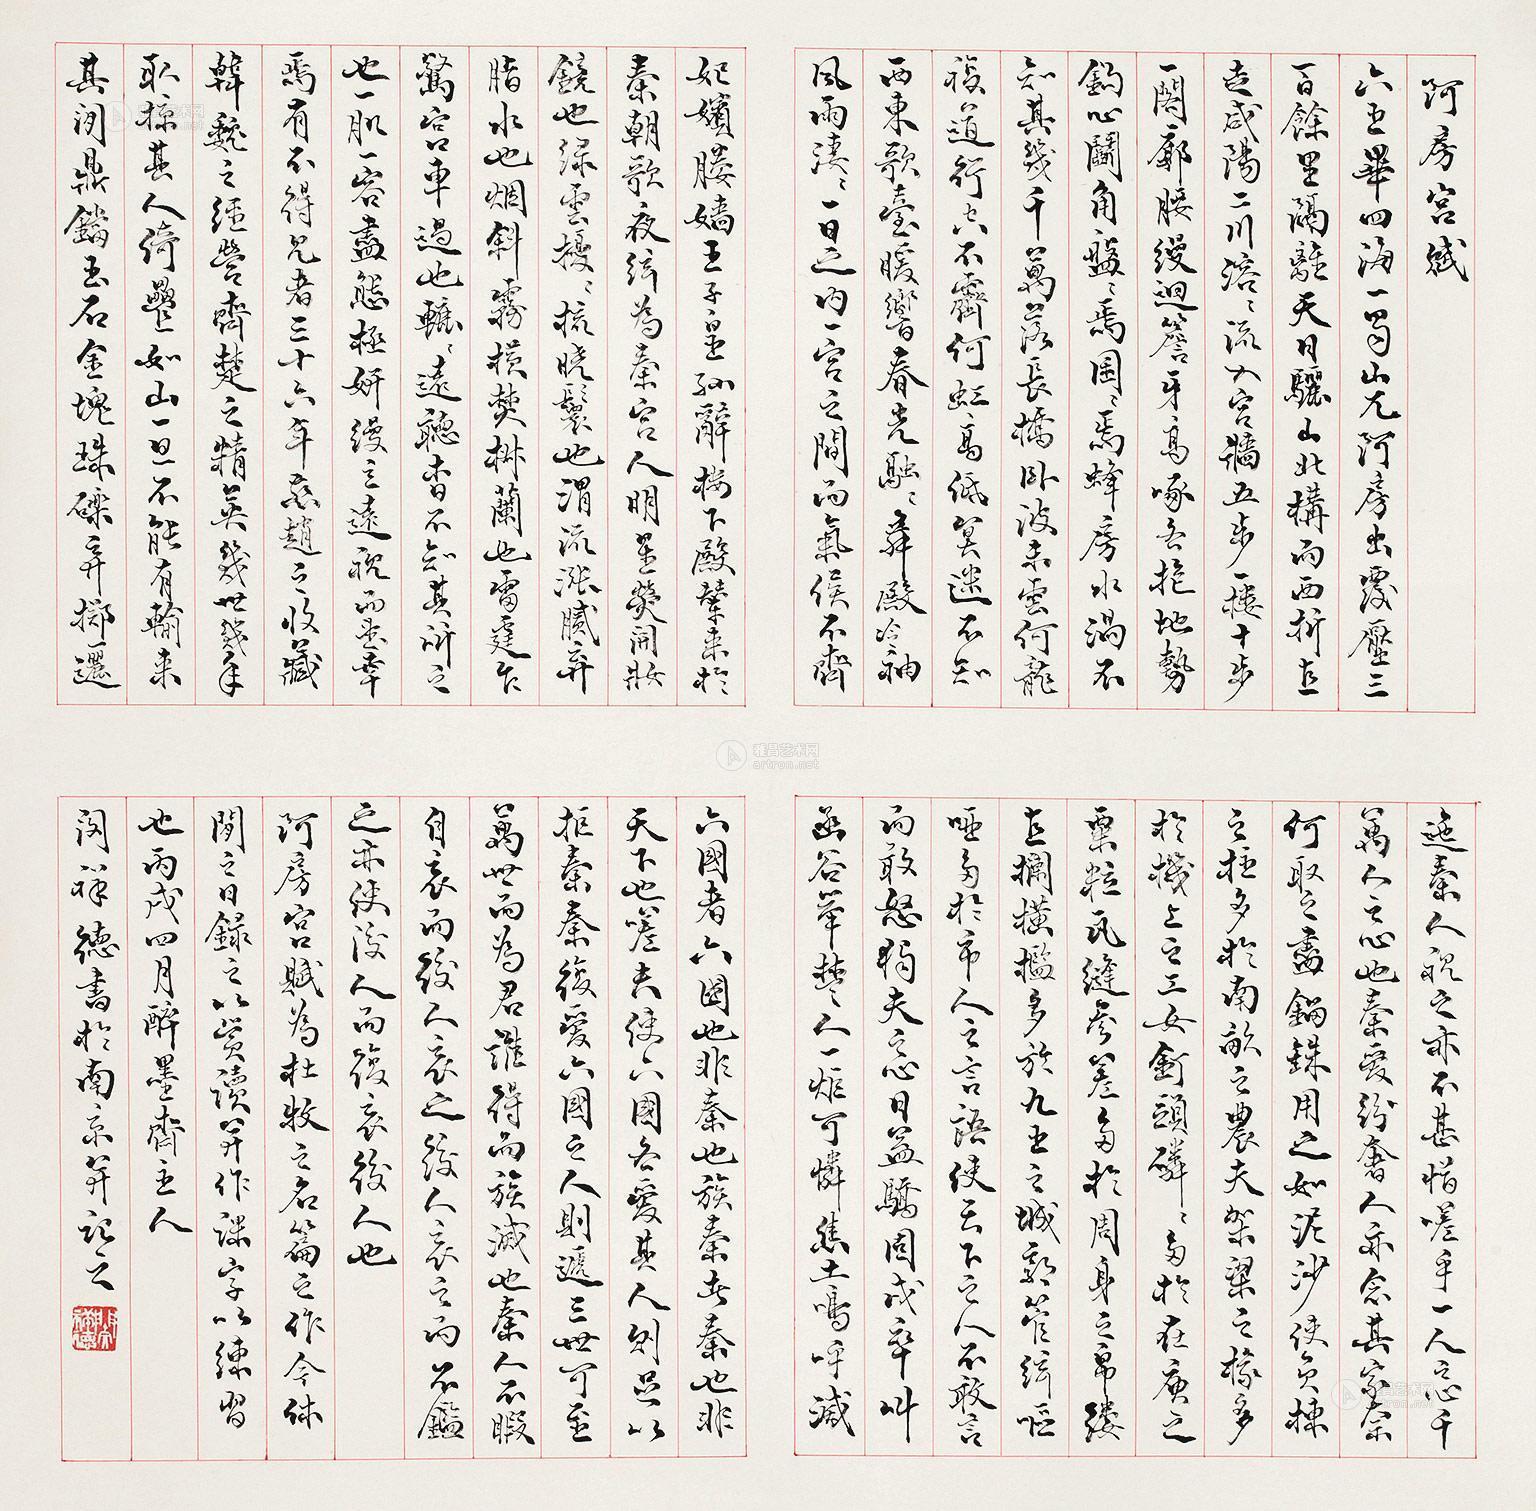 阿房宫賦
六王畢四海一蜀山兀阿房出覆壓三
百餘里隔離天日驪山北構而西折直
走咸陽二川溶〻流入宫牆五步一樓十步
一閣廊腰縵迴簷牙高啄各抱地勢
鈎心鬭角盤〻焉囷〻焉蜂房水渦不
知其幾千萬落長橋卧波未雲何龍
複道行空不霽何虹高低冥迷不知
西東歌臺暖響春光融〻舞殿冷袖
風雨淒〻一日之内一宫之間而氣候不齊
妃嬪媵嬙王子皇孫辭樓下殿輦来於
秦朝歌夜絃為秦宫人明星熒開妝
鏡也緑雲擾〻梳曉鬟也渭流漲膩弃
脂水也烟斜霧横焚椒蘭也雷霆乍
驚宫車過也轆〻遠聽杳不知其所之
也一肌一容盡態極妍縵立遠視而望幸
焉有不得見者三十六年燕趙之收藏
韓魏之經營齊楚之精英幾世幾年
取掠其人倚疊如山一旦不能有輸来
其間鼎鐺玉石金塊珠礫弃擲邐
迤秦人視之亦不甚惜嗟乎一人之心千
萬人之心也秦愛紛奢人亦念其家奈
何取之盡錙銖用之如泥沙使負棟
之柱多於南畝之農夫架梁之椽多
於機上之工女釘頭磷〻多於在庾之
粟粒瓦縫參差多於周身之帛縷
直欄横檻多於九土之城郭管絃嘔
啞多於市人之言語使天下之人不敢言
而敢怒獨夫之心日益驕固戍卒叫
函谷舉楚人一炬可憐焦土嗚呼滅
六國者六國也非秦也族秦者秦也非
天下也嗟夫使六國各愛其人則足以
拒秦秦復愛六國之人則遞三世可至
萬世而為君誰得而族滅也秦人不暇
自哀而後人哀之後人哀之而不鑑
之亦使後人而復哀後人也
阿房宫賦為杜牧之名篇之作今休
閒之日録之以資讀并作課字以練習
也丙戌四月醉墨齋主人
閔祥德書於南京并記之
雅昌艺术网
artron.net